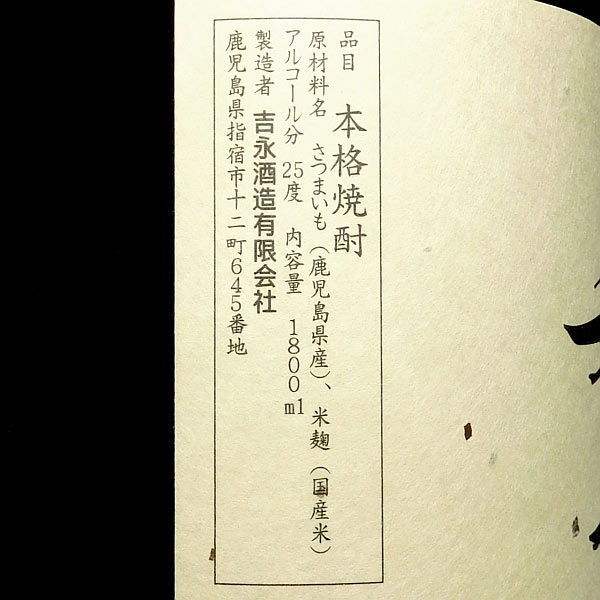 品目 本格焼酎
原材料名 さつまいも（鹿児島県産）、米麹（国産米）
アルコール分 25度 内容量 1800ml
製造者 吉永酒造有限会社
鹿児島県指宿市十二町645番地